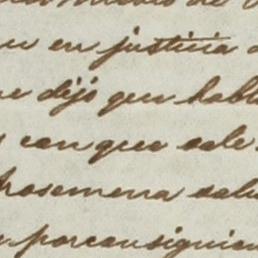 en justicia
dijo que habl
con que sale
rosemena salu
porconsiguien